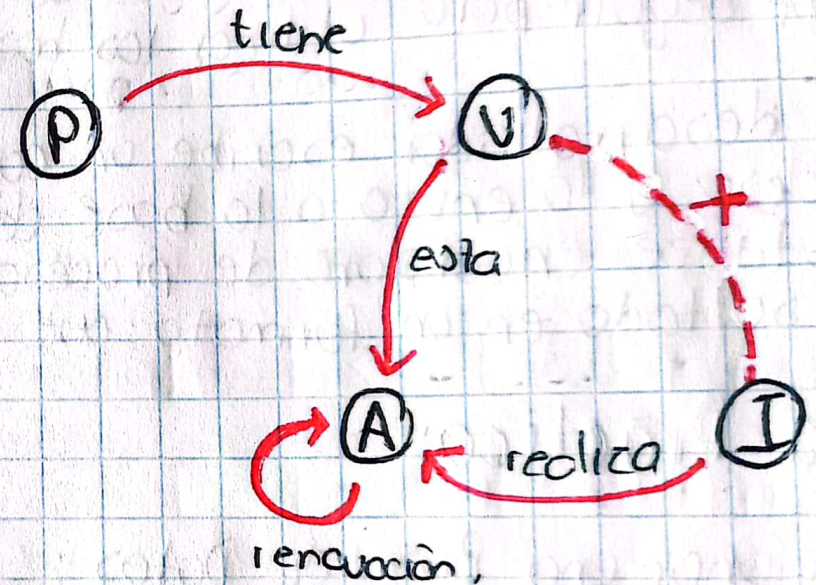 tiene
P
V
+
esta
A
I
realiza
renovación,